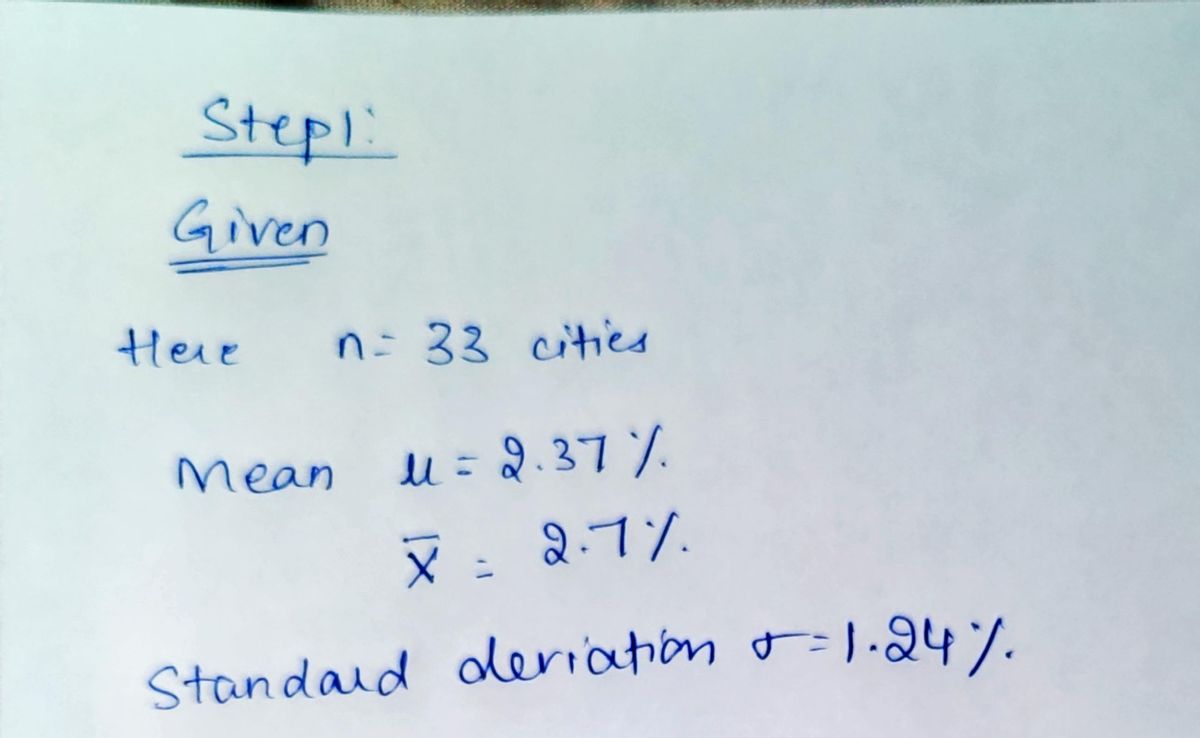 Step1:
Given
Here n= 33 cities
Mean μ = 2.37 %.
x̄ = 2.7 %.
Standard deviation σ = 1.24 %.